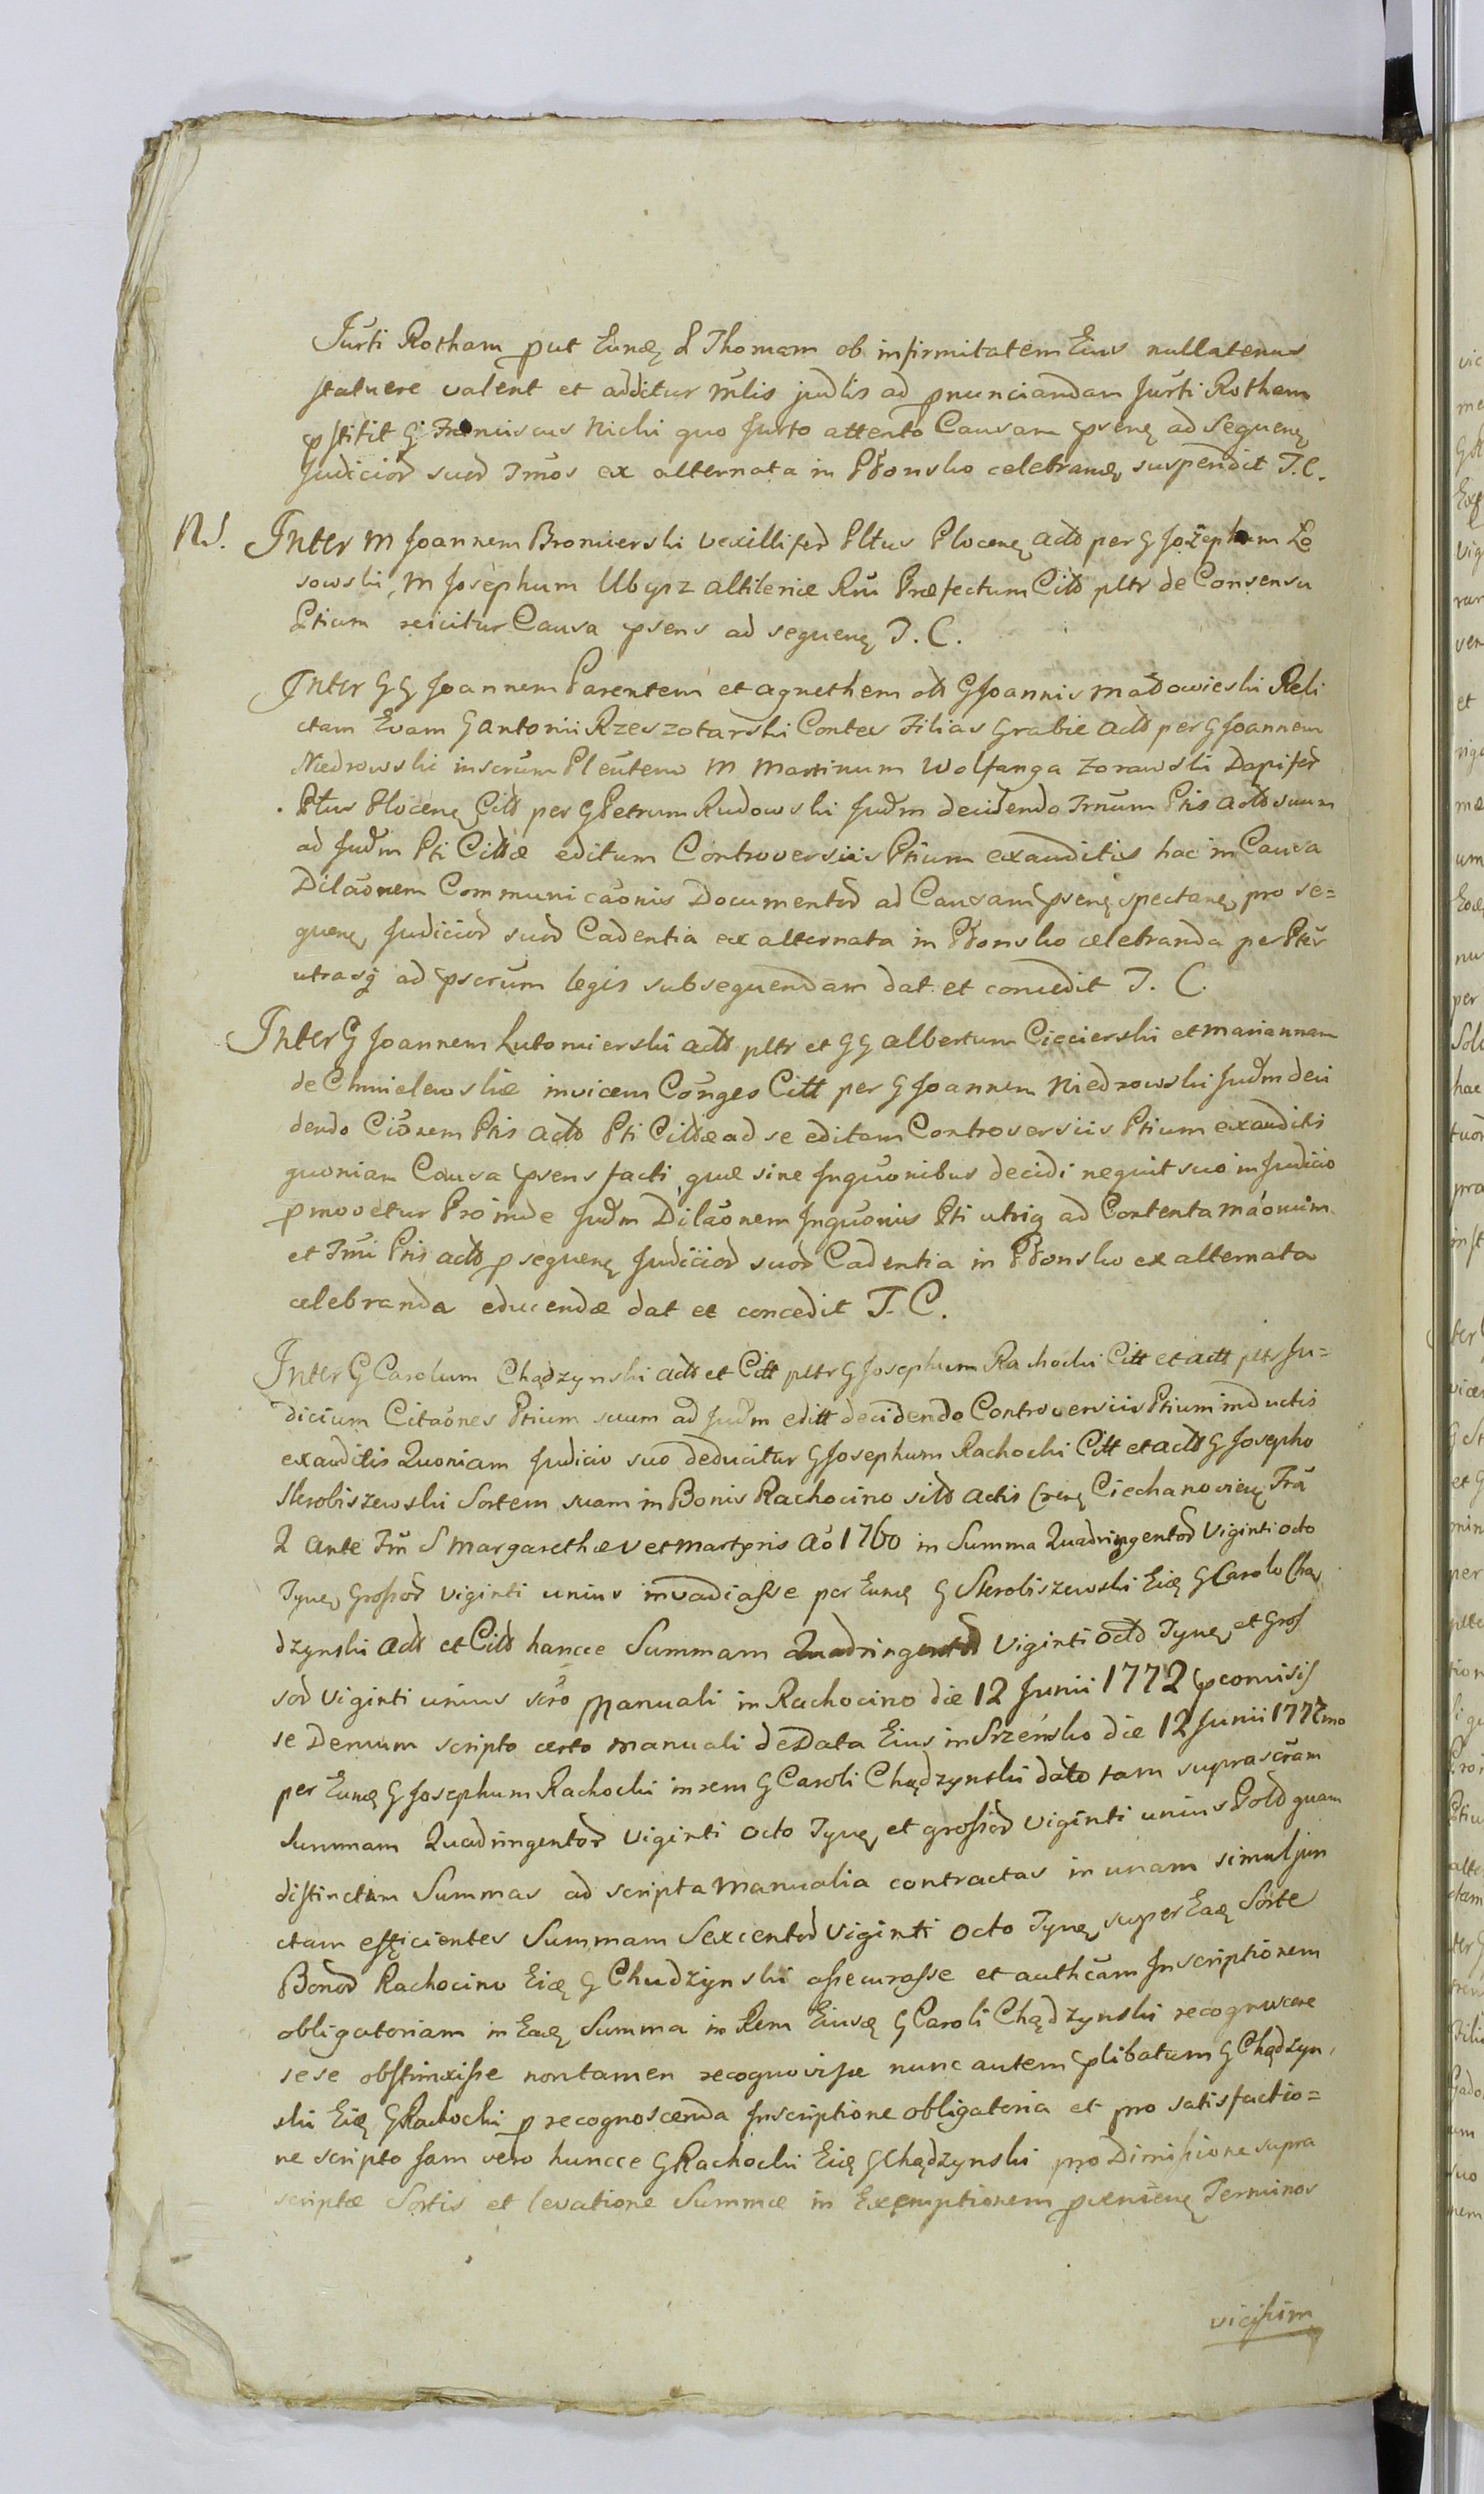 Jurti Rotham put Eundę G Thomam ob infirmitatem Eius nullatenus
statuere valent et additur mlis judlis ad pnunciandam Jurti Rotham
pstitit G Franciscus Nicki quo Jurto attento Causam psenę ad Sequenę
Judiciorˉ suorˉ Tmos ex alternata in Płonsko celebrandę suspendit T. C.
NS. Inter M Joannem Bromierski Vexilliferˉ Pltus Plocenę actˉ per G Jozephum Lˉ
sowski, M Josephum Ubysz altileriæ Rni Præfectum Citˉ pltr de Consensu
Ptium reicitur Causa psens ad sequenę T. C.
Inter GG Joannem Parentem et agnethem olt G Joannis Madowieski Reli
ctam Evam G Antonii Rzeszotarski Contes Filias Grabie actˉ per G Joannem
Niedrowski inscrum Pleutem M Martinum Wolfanga Zorawski Dapiferˉ
Pltus Plocenę Citˉ per G Petrum Rudowski Judm decidendo Tmum Ptis actˉ suum
ad Judm Pti Cittæ editum Controversiis Ptium exauditis hac in Causa
Dilaonem Communicaonis Documentorˉ ad Causam psenę spectanę pro se=
quenę Judiciorˉ suorˉ Cadentia ex alternata in Płonsko celebranda per Ptes
utrasq ad pscrum legis subsequendam dat et concedit T. C.
Inter G Joannem Lutomierski actˉ pltr et GG albertum Ciecierski et mariannam
de Chmielewskie invicem Conges Citt per G Joannem Niedrowski Judm deci
dendo Cionem Ptis actˉ Pti Cittæ ad se editam Controversiis Ptium exauditis
quoniam Causa psens facti, quæ sine Inquonibus decidi nequit suo in Judicio
pmovetur Proinde Judm Dilaonem Inquonis Pti utriq ad Contenta maonum
et Tmi Ptis actˉ p sequenę Judiciorˉ suorˉ Cadentia in Płonsko ex alternata
celebranda educendæ dat et concedit T. C.
Inter G Carolum Chądzynski actˉ et Citt pltr G Josephum Rachocki Citt et actˉ pltr Ju=
dicium Citaones Ptium suum ad Judm editt decidendo Controversiis Ptium inductis
exauditis Quoniam Judicio suo deducitur G Josephum Rachocki Citt et actˉ G Josepho
Skrobiszewski Sortem suam in Bonis Rachocino sitˉ actis Crenę Ciechanovienę Fra
2 ante Fm S Margarethæ V et Martyris Ao 1760 in Summa Quadringentorˉ Viginti octo
Tynę Grossorˉ viginti unius invadiasse per Eunę G Skrobiszewski Eię G Carolo Chą
dzynski actˉ et Citˉ hancce Summam Quadringentorˉ Viginti octo Tynę et Gros
sorˉ viginti unius scro Manuali in Rachocino die 12 Junii 1772 pcomisis
se Demum scripto certo Manuali de Data Eius in Srzeńsko die 12 Junii 1772mo
per Eunę G Josephum Rachocki in rem G Caroli Chądzynski dato tam suprascram
Summam Quadringentorˉ Viginti Octo Tynę et grossorˉ viginti unius Poldˉ quam
distinctam Summas ad scripta Manualia contractas in unam simul jun
ctam efficientes Summam Sexcentorˉ Viginti Octo Tynę super Eaę Sorte
Bonorˉ Rachocino Eię G Chudzynski assecurasse et authcam Inscriptionem
obligatoriam in Eadę Summa in Rem Eiusę G Caroli Chądzynski recognoscere
sese obstrinxisse nontamen recognovisse nunc autem plibatum G Chądzyn,
ski Eię G Rachocki p recognoscenda Inscriptione obligatoria et pro satisfactio=
ne scripto Jam vero huncce G Rachocki Eię G Chądzynski pro Dimissione supra
scriptæ Sortis et levatione Summæ in Exemptionem pvenienę Terminos
vicissim